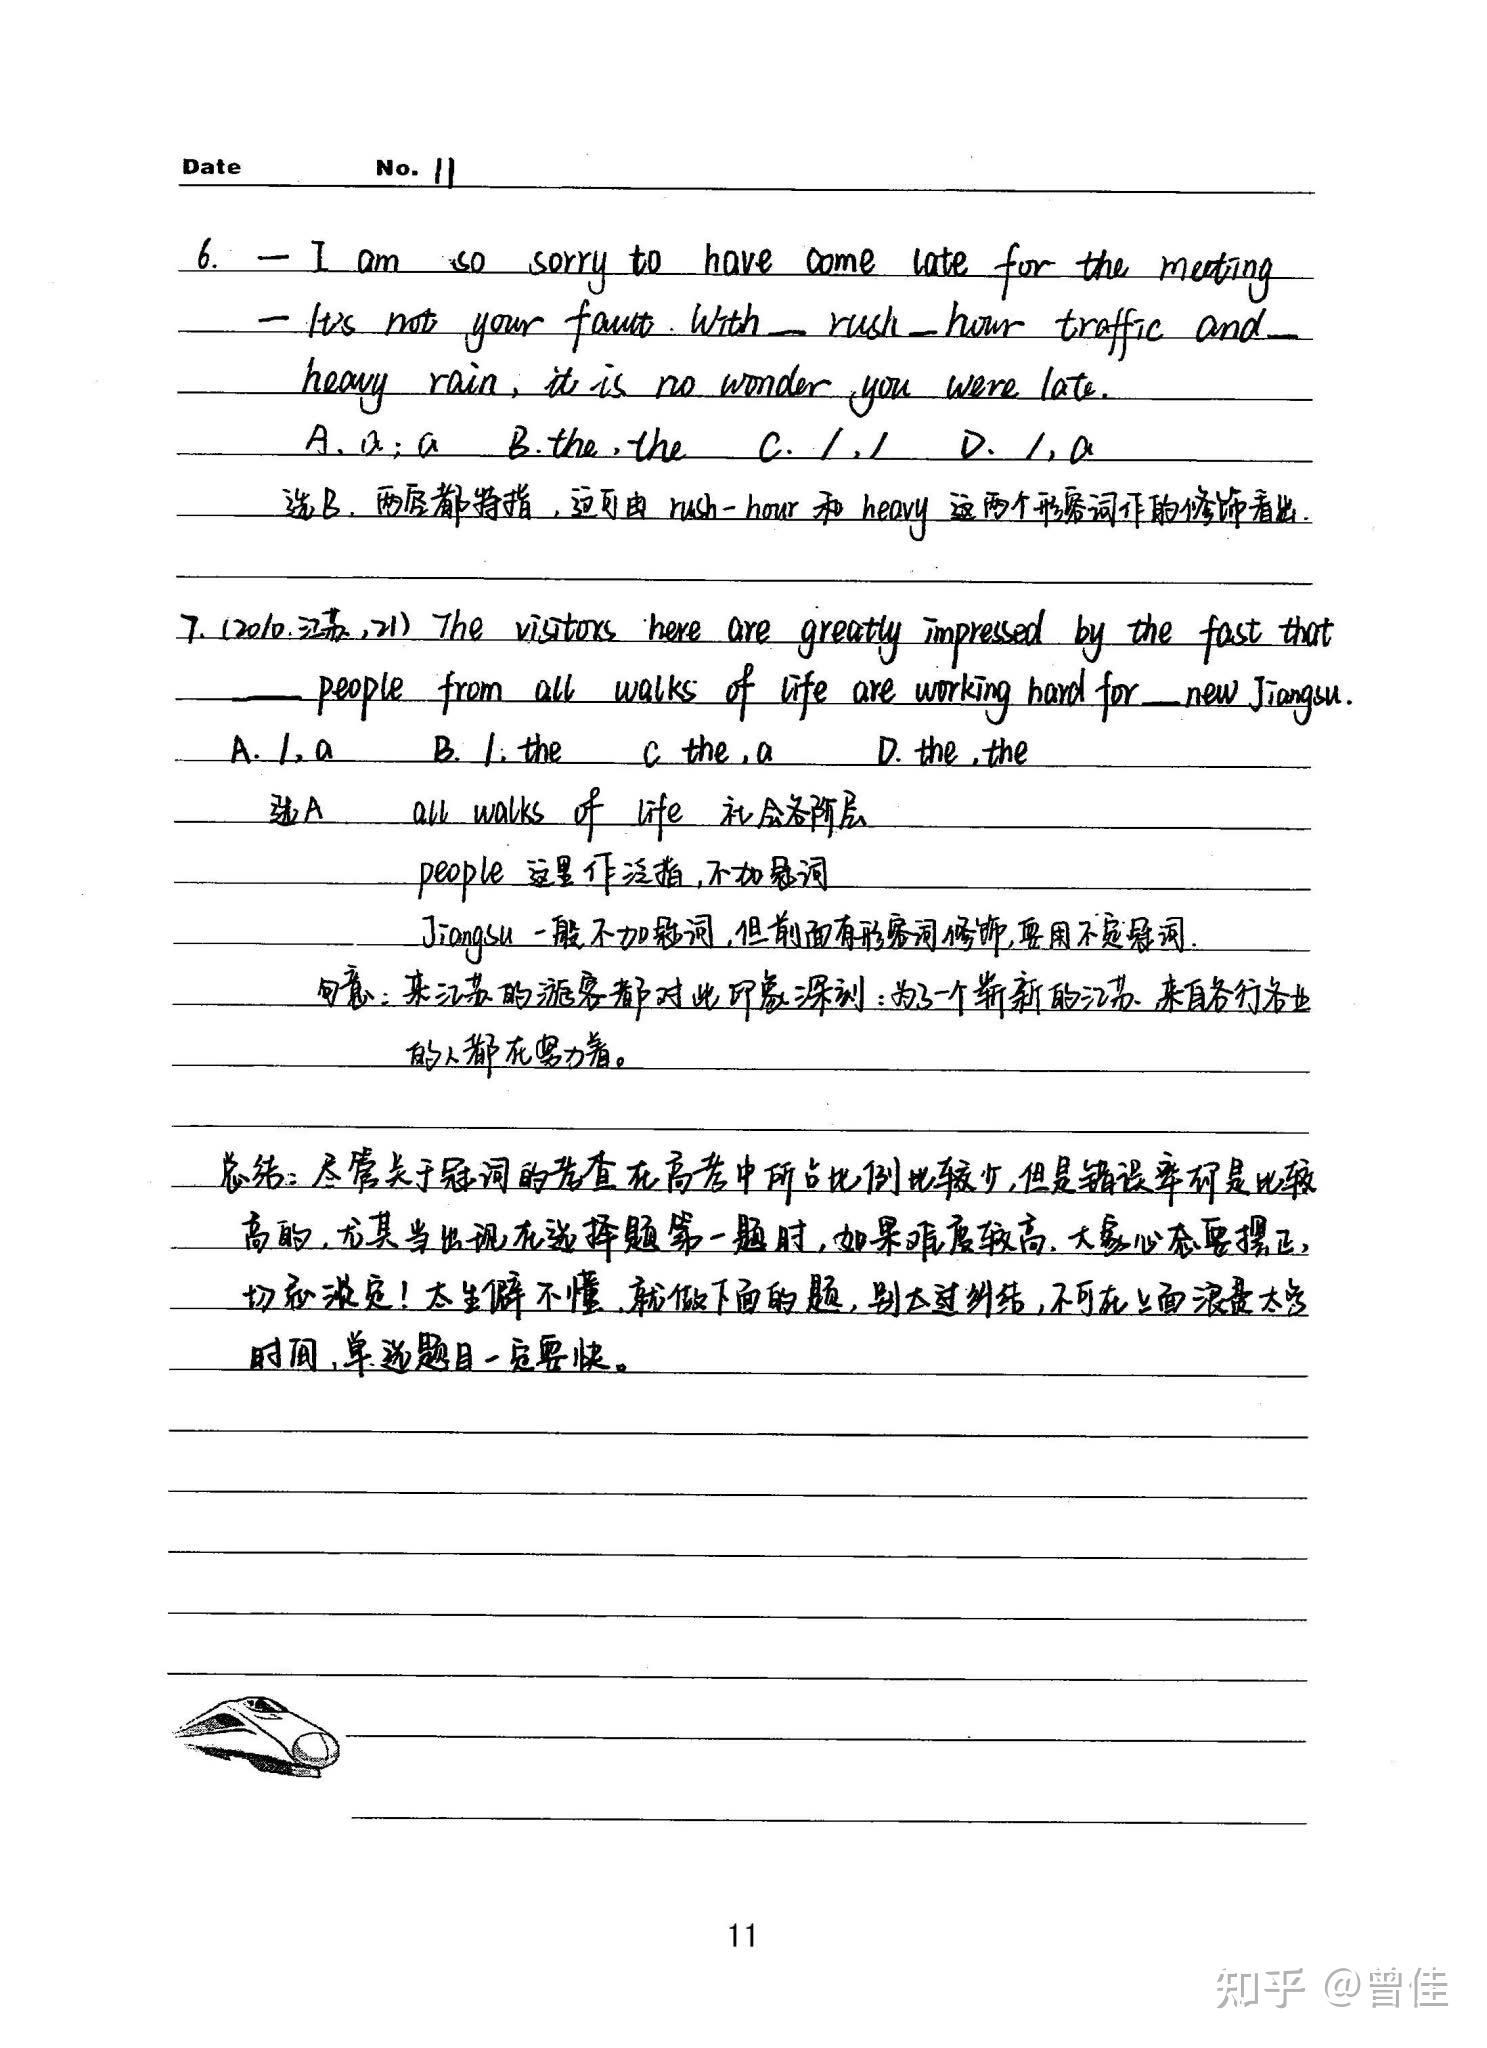 Date No. 11
6. — I am so sorry to have come late for the meeting
— It's not your fault. With __ rush_hour traffic and __
heavy rain, it is no wonder you were late.
A. a; a B. the, the C. /, / D. /, a
选B. 两层都特指, 这可由 rush-hour 和 heavy 这两个形容词作的修饰看出.
7. (2010.江苏, 21) The visitors here are greatly impressed by the fast that
__ people from all walks of life are working hard for __ new Jiangsu.
A. /, a B. /. the C the, a D. the, the
选A all walks of life 社会各阶层
people 这里作泛指, 不加冠词
Jiangsu 一般不加冠词, 但前面有形容词修饰, 要用不定冠词.
句意: 来江苏的游客都对此印象深刻: 为了一个崭新的江苏、来自各行各业
的人都在努力着。
总结: 尽管关于冠词的考查在高考中所占比例比较少, 但是错误率都是比较
高的, 尤其当出现在选择题第一题时, 如果难度较高, 大家心态要摆正,
切忌淡定! 太生僻不懂, 就做下面的题, 别太过纠结, 不可在上面浪费太多
时间, 单选题目一定要快。
11
知乎 @曾佳